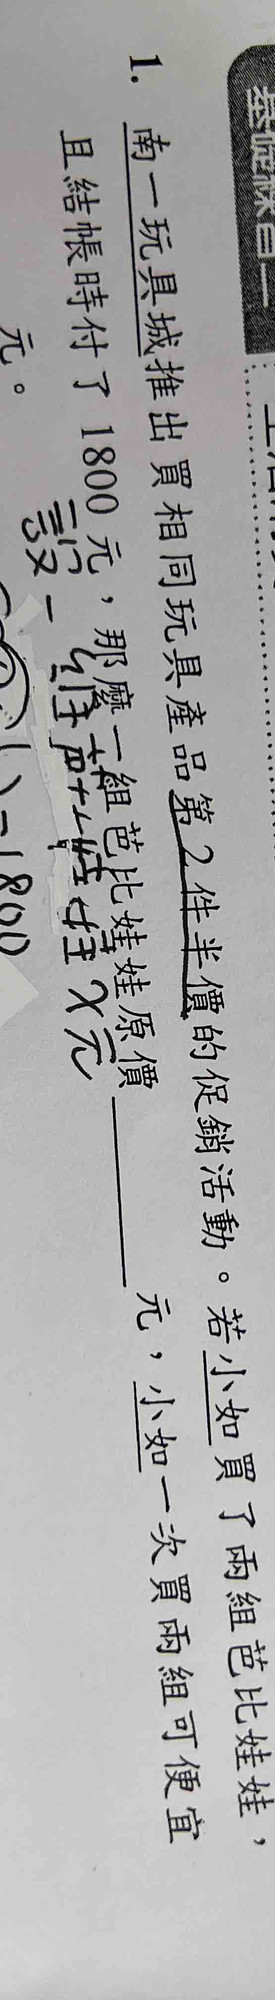 基礎練習一
1. 南一玩具城推出買相同玩具產品第2件半價的促銷活動。若小如買了兩組芭比娃娃，
且結帳時付了1800元，那麼一組芭比娃娃原價______元，小如一次買兩組可便宜
元。
設一組芭比娃娃X元
)=1800